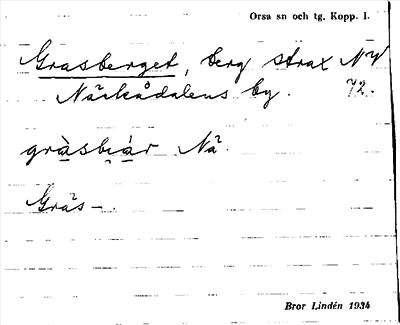 Orsa sn och tg. Kopp. l.
Grasberget, berg strax NV
Näckådalens by. 72.
gràsbi̯ár Nä.
Gräs-.
Bror Lindén 1934